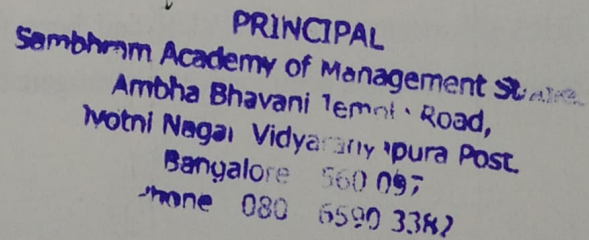 PRINCIPAL
Sambhram Academy of Management
Ambha Bhavani Temple Road,
Jyothi Nagar Vidyaranyapura Post.
Bangalore 560 097
Phone 080 6590 3382